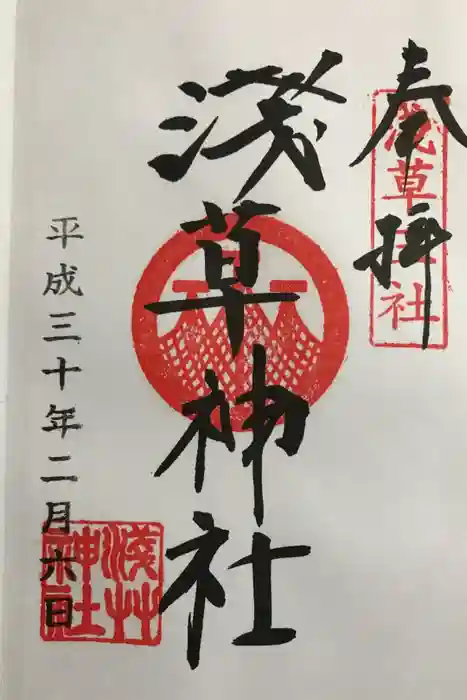 奉拝
淺草神社
淺草神社
平成三十年二月六日
淺草神社